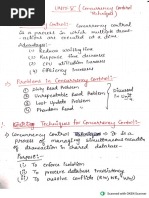 UNIT-5 (Concurrency Control Techniques)
Concurrency Control:- Concurrency Control
is a process in which multiple trans-
-actions are executed at a time.
Advantages:-
(1) Reduce waiting time
(2) Response time decrease
(3) Resource utilization
(4) Increased efficiency
Problems in Concurrency Control:-
(1) Dirty Read Problem
(2) Unrepeatable Read Problem
(3) Lost Update Problem
(4) Phantom Read "
Discussed in
Techniques for Concurrency Control:-
Concurrency Control Technique → It is a
Process of managing simultaneous execution
of transaction in shared database.
Purpose:-
(1) To enforce isolation
(2) To preserve database consistency
(3) To resolve conflicts
Scanned with OKEN Scanner